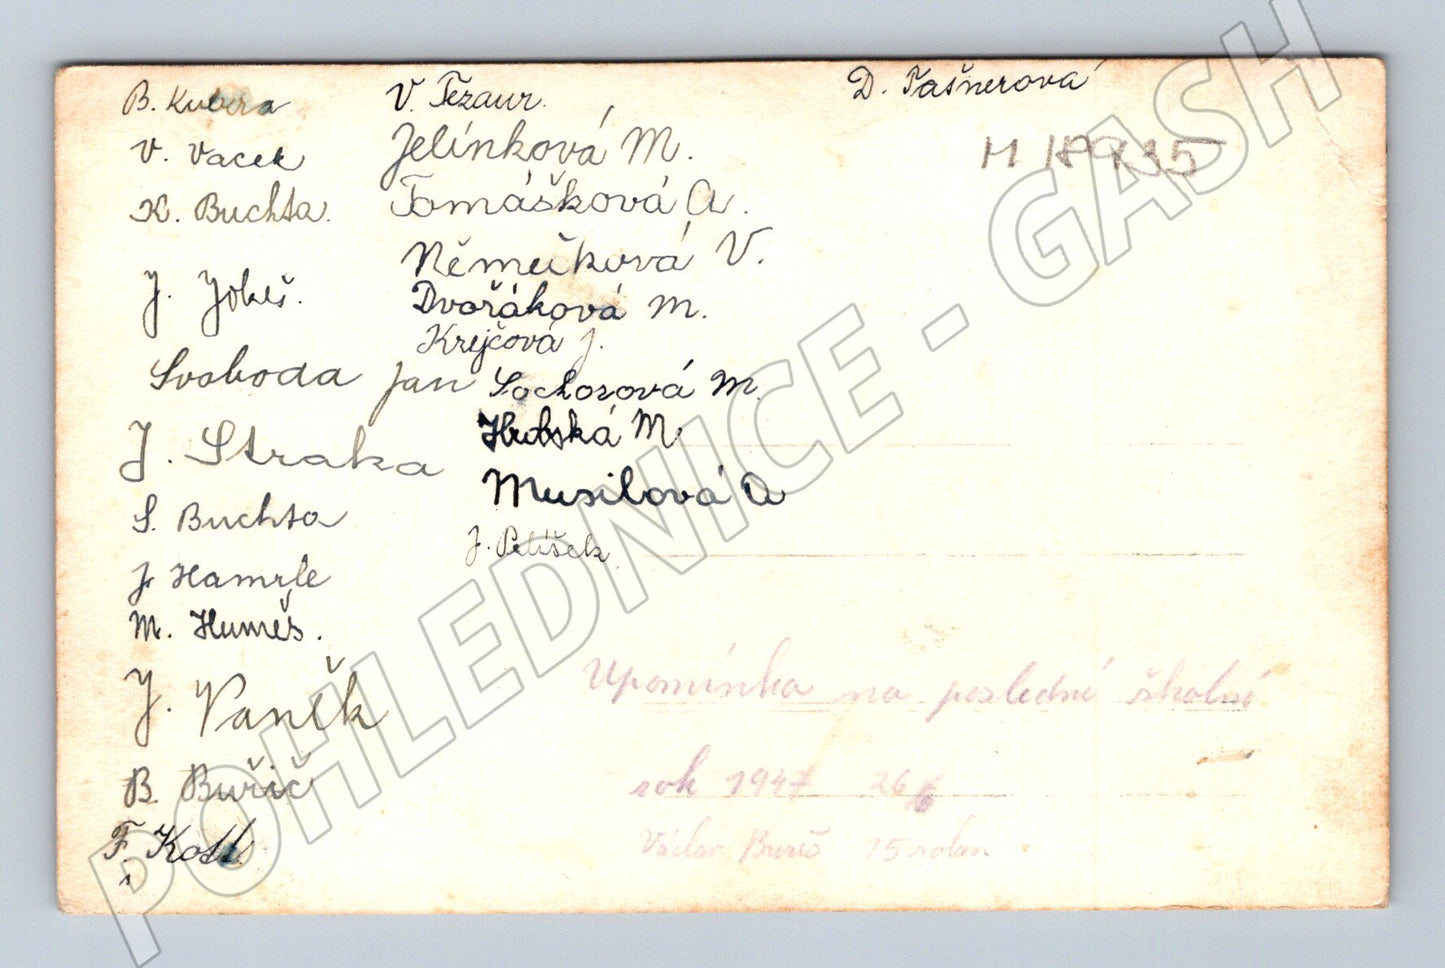 B. Kubera
V. Vacek
K. Buchta.
J. Jokeš.
Svoboda Jan
J. Straka
S. Buchta
J. Hamrle
M. Humeš.
J. Vaněk
B. Buřič
F. Kotl
V. Tezaur.
Jelínková M.
Tomášková A.
Němečková V.
Dvořáková M.
Krejčová J.
Sochorová M.
Hrubská M.
Musilová A
J. Pelíšek.
D. Tašnerová
M 18935
Upomínka na poslední školní
rok 1947 26/6
Václav Bureš 15 roků
POHLEDNICE - GASH